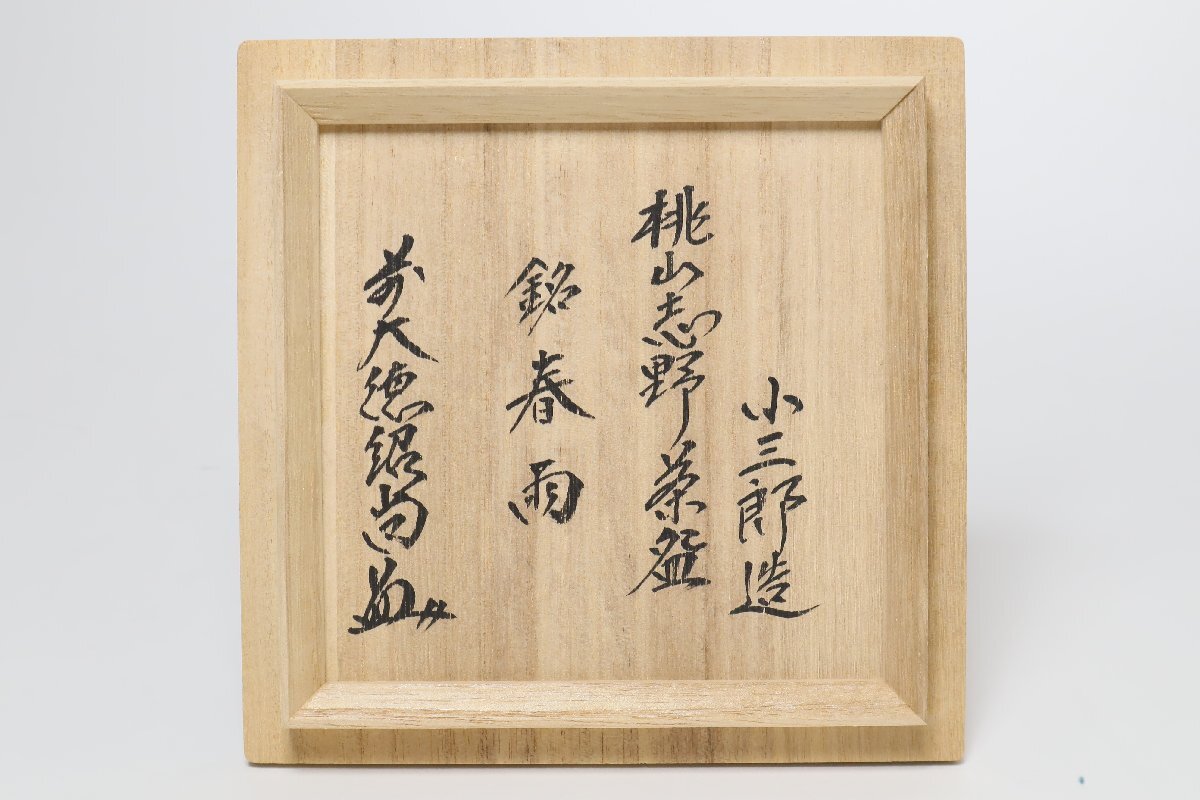 小三郎造
桃山志野茶盌
銘 春雨
前大徳紹尚